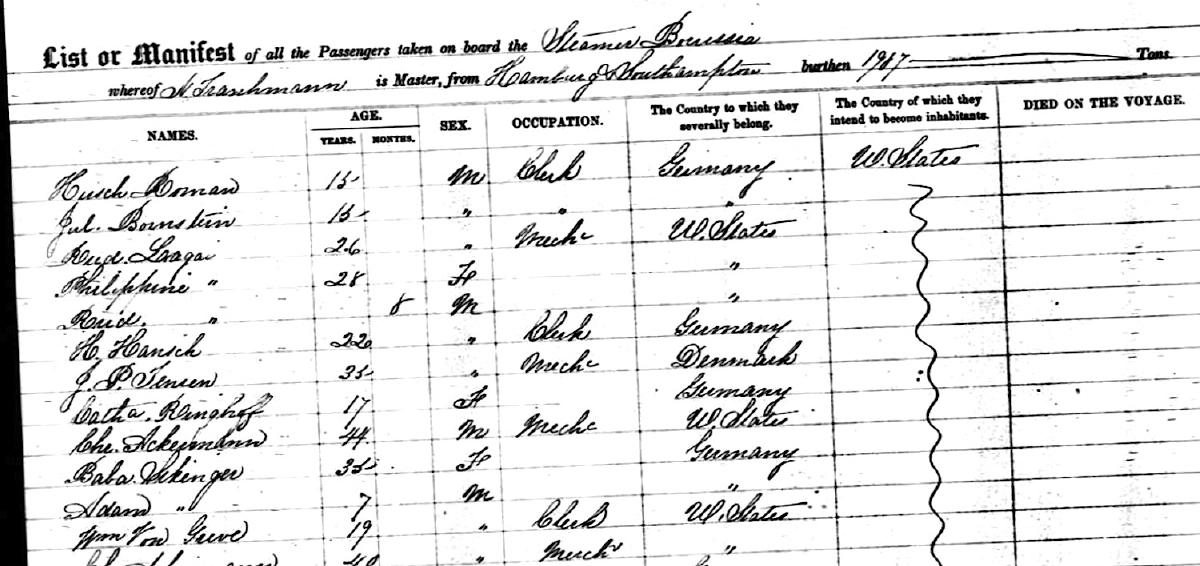 List or Manifest of all the Passengers taken on board the Steamer Borussia
whereof N Trauhmann is Master, from Hamburg & Southampton burthen 1987 Tons
NAMES. AGE. YEARS. MONTHS. SEX. OCCUPATION. The Country to which they severally belong. The Country of which they intend to become inhabitants. DIED ON THE VOYAGE.
Roman 15 M Clerk Germany U. States
Jul. Bornstein 15 " " "
Rud. 26 " Mechc U. States
Philippine " 28 F "
Rud. " 8 M "
H. Hansch 22 " Clerk Germany
J. P. Jensen 35 " Mechc Denmark
Catha. Ringhoff 17 F Germany
Chr. Ackermann 44 M Mechc U. States
Baba 35 F Germany
Adam " 7 M "
Wm Von Greve 19 " Clerk U. States
40 " Merchr "